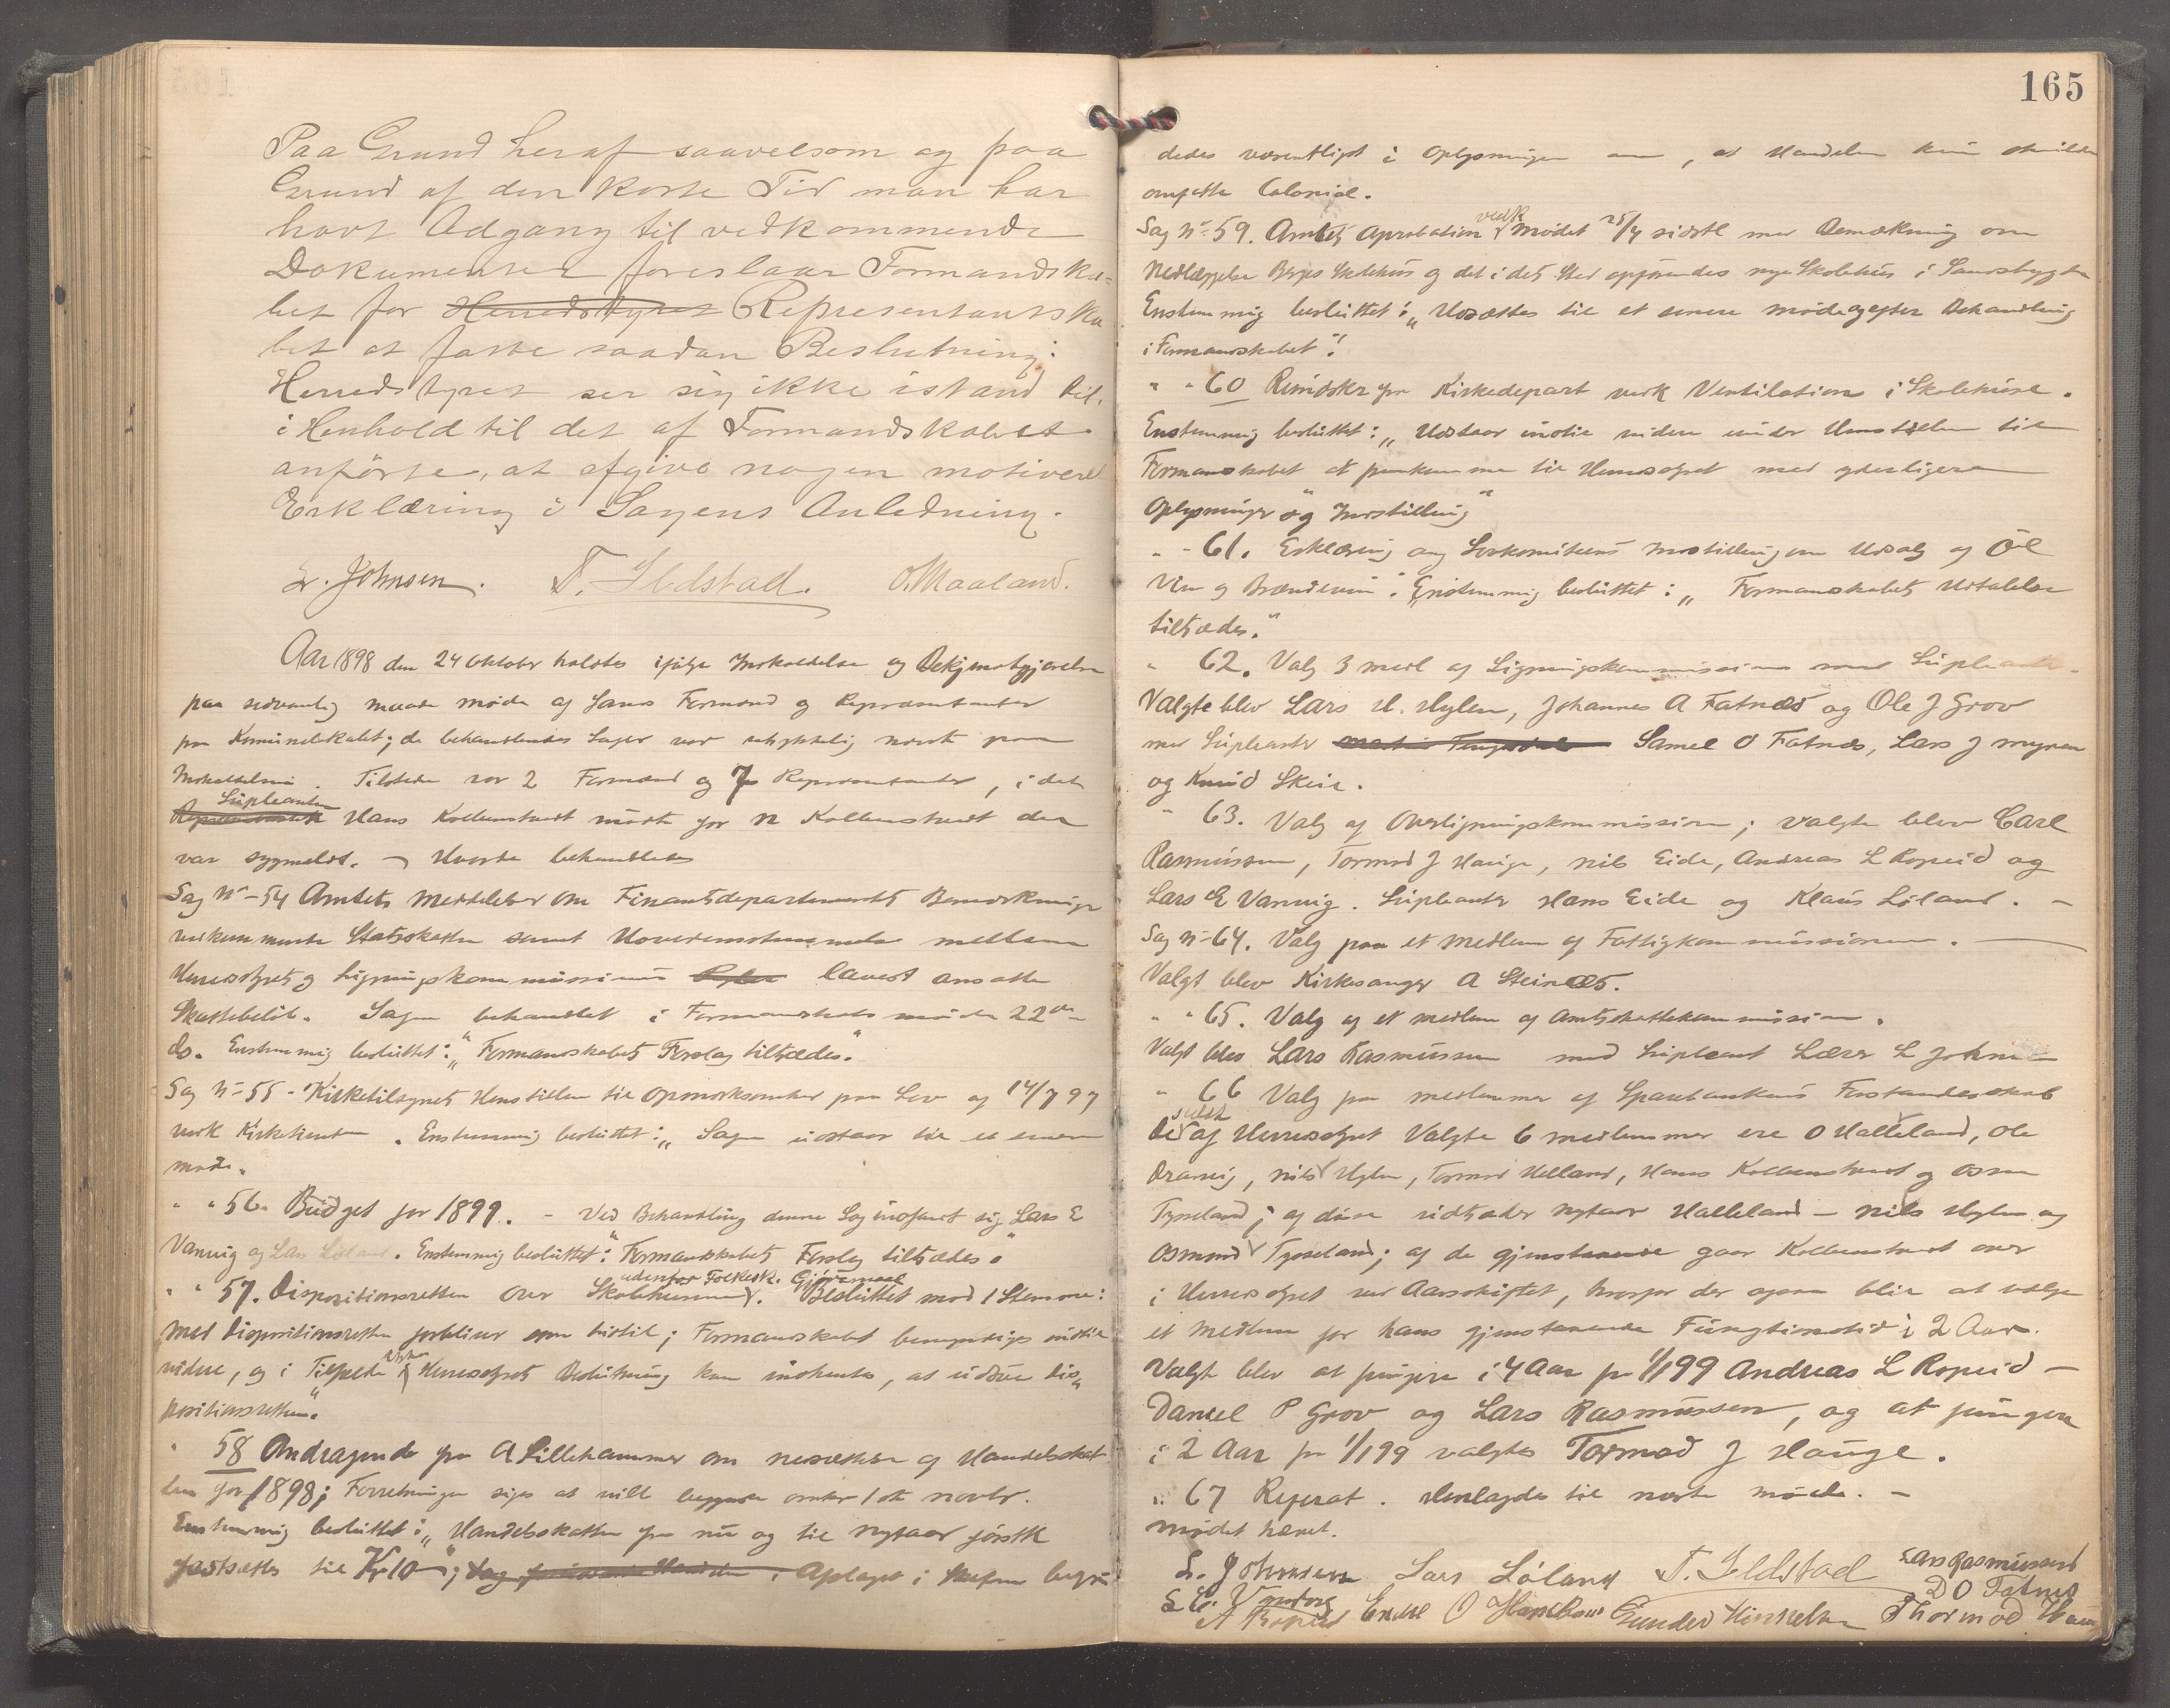 Paa Grund heraf saavelsom og paa
Grund af den korte Tid man har
havt Adgang til vedkommende
Dokumenter foreslaar Formandska-
bet for Herredstyret Representantska
bet at fatte saadan Beslutning:
Herredstyret ser sig ikke istand til,
i Henhold til det af Formandskabet
anförte, at afgive nogen motiveret
Erklæring i Sagens Anledning.
L. Johnsen. T. Ildstad. O. Maaland.
Aar 1898 den 24 Oktober holdtes ifølge Indkaldelse og Bekjendtgjørelse
paa sedvanlig maade møde af Sands Formænd og Repræsentanter
for Komunelokalet; de behandlendes Sager var
Indkaldelsen. Tilstede var 2 Formænd og 7 Repræsentanter, i det
Supleanten
Repræsentant Hans Kolbenstvedt mødte for N Kolbenstvedt der
var sygmeldt. – Hvorda behandledes
Sag No 54 Amtets Meddelelser om Finantsdepartementets Bemærkninger
vedkommende Statsskatten samt Uoverenstemmelse mellem
Herredstyrets og Ligningskommissionens lavest ansatte
Skattebeløb. Sagen behandlet i Formandskabsmøde 22de
ds. Enstemmig besluttet: "Formandskabets Forslag tiltrædes."
Sag No 55 - Kirketilsynets Henstillen til Opmærksomhed paa Lov af 14/7 97
vedk Kirketienden. Enstemmig besluttet: "Sagen udstaar til et senere
møde.
" " 56. Budget for 1899. - Ved Behandling denne Sag indfandt sig Lars E
Varvig og Lars Løland. Enstemmig besluttet: "Formandskabets Forslag tiltrædes."
udenfor Folkesk. Gjøremaal
" " 57. Dispositionsretten over Skolehusene. Besluttet mod 1 Stemme:
"Med Dispositionsretten forbliver som hidtil; Formandskabet bemyndiges indtil
videre, og i Tilfælde Herredstyrets Beslutning kan indhentes, at udøve Dis-
positionsretten."
" 58 Andragende fra A Lillehammer om nedsættelse af Handelsskat
ten for 1898; Forretningen siges at ville begynde omkr 1ste novbr.
Enstemmig besluttet: "Handelsskatten fra nu og til nytaar førstk
fastsættes til Kr 10"; Aplaget i Skatten begrun
165
dedes væsentligst i Oplysningen om, at Handelen kun skulde
omfatte Colonial.
vedk
Sag No 59. Amtets Aprobation Mødet 25/4 sidstl med Bemærkning om
Nedlæggelse Berges Skolehus og det i dets Sted opførendes nye Skolehus i Sandsbygden
Enstemmig besluttet: "Udsættes til et senere møde og efter Behandling
i Formandskabet".
" " 60 Rundskr fra Kirkedepart vedk Ventilation i Skolehuse.
Enstemmig besluttet: "Udstaar indtil videre under Henstillen til
Formandskabet at fremkomme til Herredstyret med yderligere
Oplysninger og Indstilling"
" " 61. Erklæring ang Lovkomiteens Indstilling om Udsalg af Öl
Vin og Brændevin. Enstemmig besluttet: "Formandskabets Udtalelse
tiltrædes."
" 62. Valg 3 medl af Ligningskommissionen med Supleanter.
Valgte blev Lars H. Hylen, Johannes A Fatnæs og Ole J Grov
med Supleanter Samel O Fatnæs, Lars J myren
og Knud Skeie.
" 63. Valg af Overligningskommission; valgte blev Carl
Rasmussen, Tormod J Hauge, nils Eide, Andreas L Ropeid og
Lars E Varvig. Supleanter Hans Eide og Klaus Løland. –
Sag No 64. Valg paa et Medlem af Fattigkommissionen.
Valgt blev Kirkesanger A Steinæs.
" " 65. Valg af et medlem af Amtsskattekommission.
Valgt blev Lars Rasmussen med Supleant Lærer L Johnsen
" 66 Valg paa medlemmer af Sparebankens Forstanderskab
De af Herredstyret Valgte 6 medlemmer ere O Halleland, Ole
Dravig, nils Hylen, Tormod Helland, Hans Kolbenstvedt og Osm
Tysseland; af disse udtræder nytaar Halleland – Nils Hylen og
Osmund Tysseland; af de gjenstaaende gaar Kolbenstvedt over
i Herredstyret ved Aarsskiftet, hvorfor der ogsaa blir at vælge
et Medlem for hans gjenstaaende Fungtionstid i 2 Aar.
Valgt blev at fungere i 4 Aar fra 1/1 99 Andreas L Ropeid –
Daniel P Grov og Lars Rasmussen, og at fungere
i 2 Aar fra 1/1 99 valgtes Tormod J Hauge.
" 67 Referat. Henlagdes til næste møde. –
mødet hævet.
L. Johnsen Lars Løland T. Ildstad Lars Rasmussen
L E. Varvig D O Fatnes
A Ropeid Endre O Gunder Thormod Haug